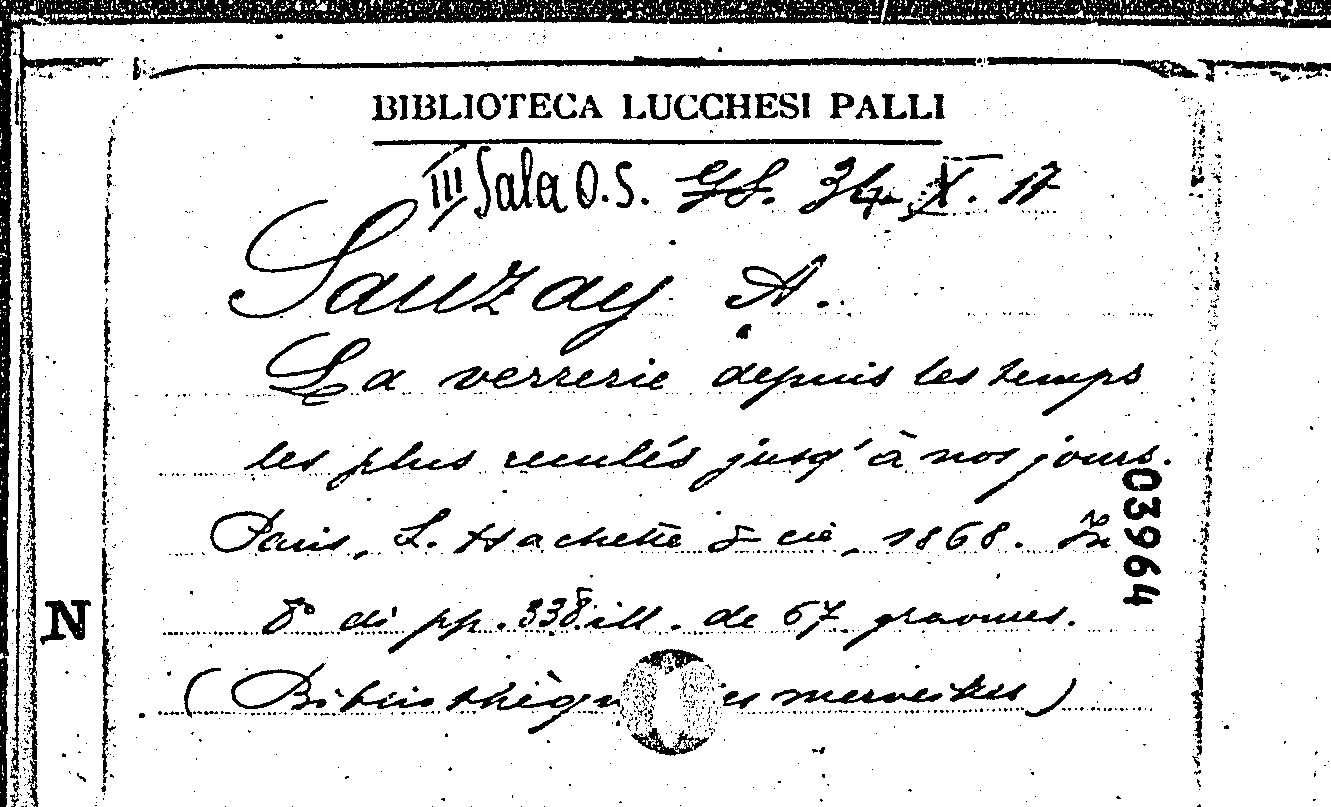 BIBLIOTECA LUCCHESI PALLI
III Sala O.S. 34. X. 17
Sauzay A.
La verrerie depuis les temps
les plus reculés jusq'à nos jours.
Paris, L. Hachette & cie, 1868. In
8° di pp. 338 ill. de 67 gravures.
(Bibliothèqu es merveilles)
03964
N